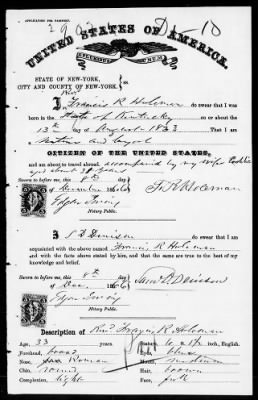 APPLICATION FOR PASSPORT.
UNITED STATES OF AMERICA.
E PLURIBUS UNUM
STATE OF NEW-YORK,
CITY AND COUNTY OF NEW-YORK, } ss
I, Francis R Holeman do swear that I was
born in the State of Kentucky on
13th day of August 1833 That I am
CITIZEN OF THE UNITED STATES,
and am about to travel abroad, accompanied by my wife
Sworn to before me, this 8th
day of December 1866
F. R. Holeman
Notary Public.
I, S D Denison do swear that I am
acquainted with the above named Francis R Holeman
and with the facts above stated by him, and that the same are true to the best of my
knowledge and belief.
Sworn to before me, this 8th
day of Dec. 1866
Saml D Denison
Notary Public.
Description of Rev Francis R Holeman
Age, 33 years,
Forehead, broad
Nose, Roman
Chin, round
Complexion, light
in. English.
Eyes, blue
Mouth, medium
Hair, brown
Face, full